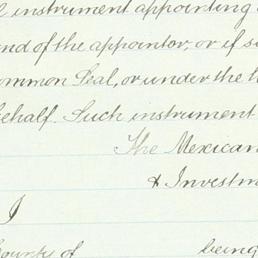 instrument appointing
nd of the appointor, or if s
ommon Seal, or under the h
ehalf. Such instrument
The Mexican
& Investm
I
County of being